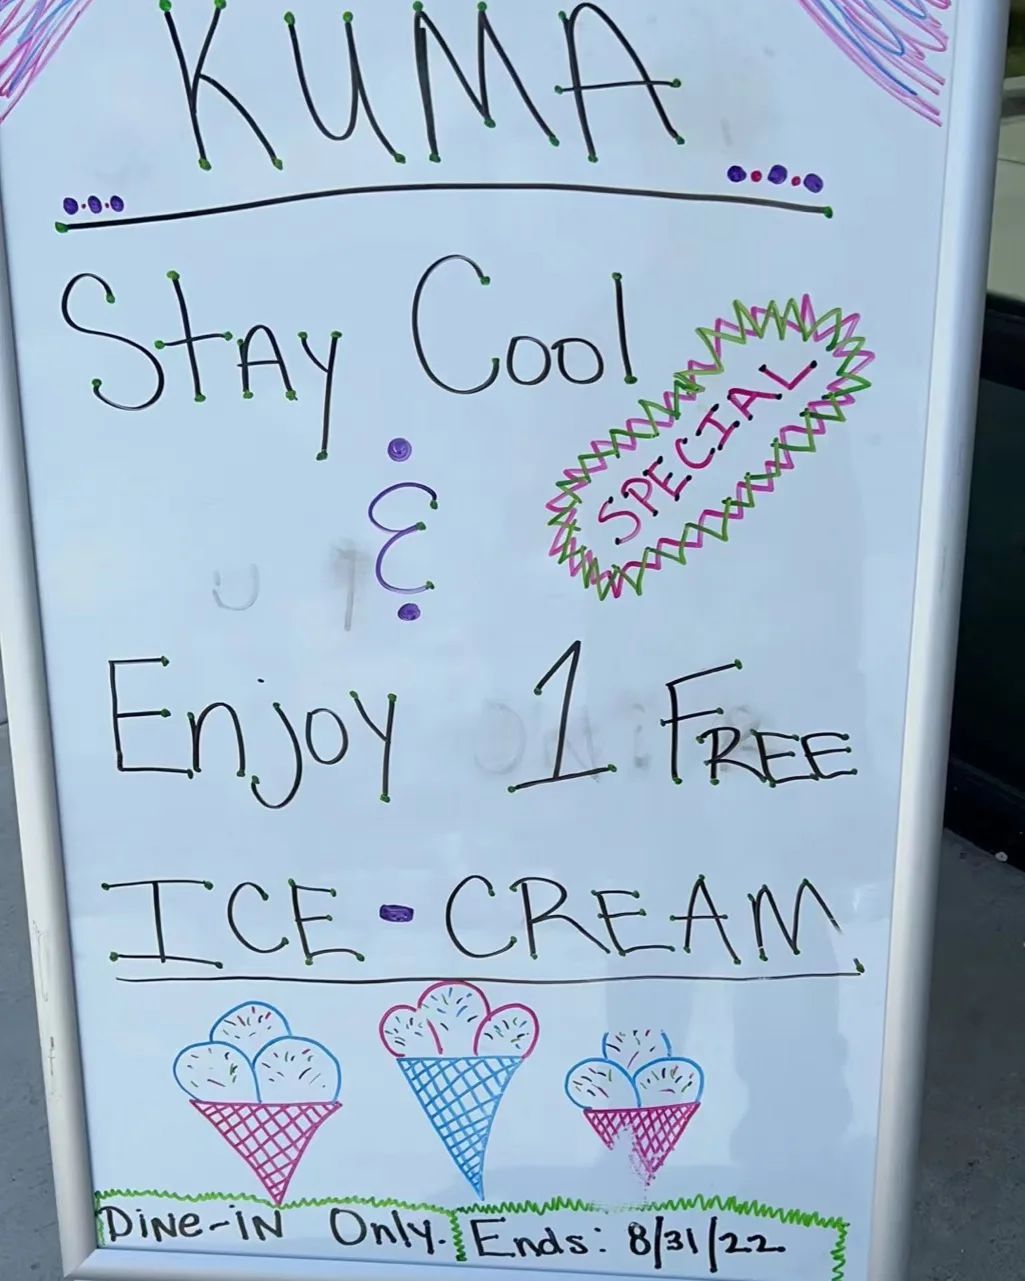 KUMA
Stay Cool
SPECIAL
&
Enjoy 1 FREE
ICE-CREAM
Dine-in Only. Ends: 8/31/22